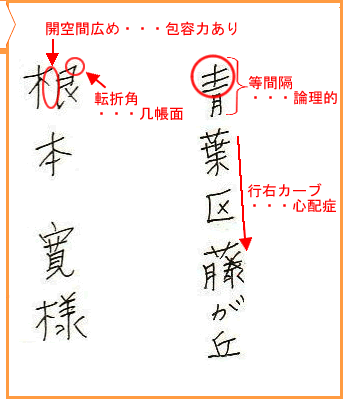 開空間広め・・・包容力あり
転折角
・・・几帳面
等間隔
・・・論理的
行右カーブ
・・・心配症
青葉区藤が丘
根本 寛様